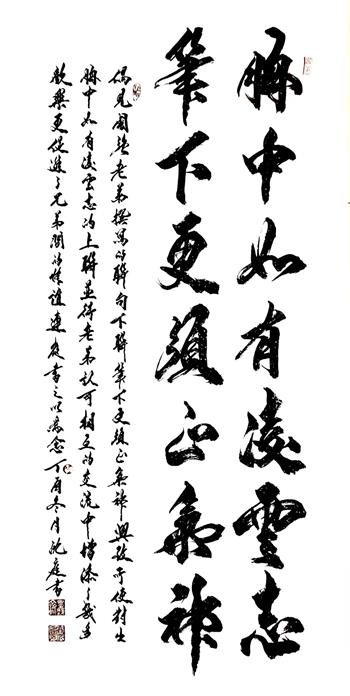 胸中如有凌雲志
筆下更須正氣神
偶見周 老弟撰寫的聯句下聯筆下更須正氣神興致所使對出
胸中如有凌雲志的上聯並得老弟認可相互的交流中增添了幾多
歡樂更促進了兄弟間的情誼連夜書之以為念丁酉冬月 庭書